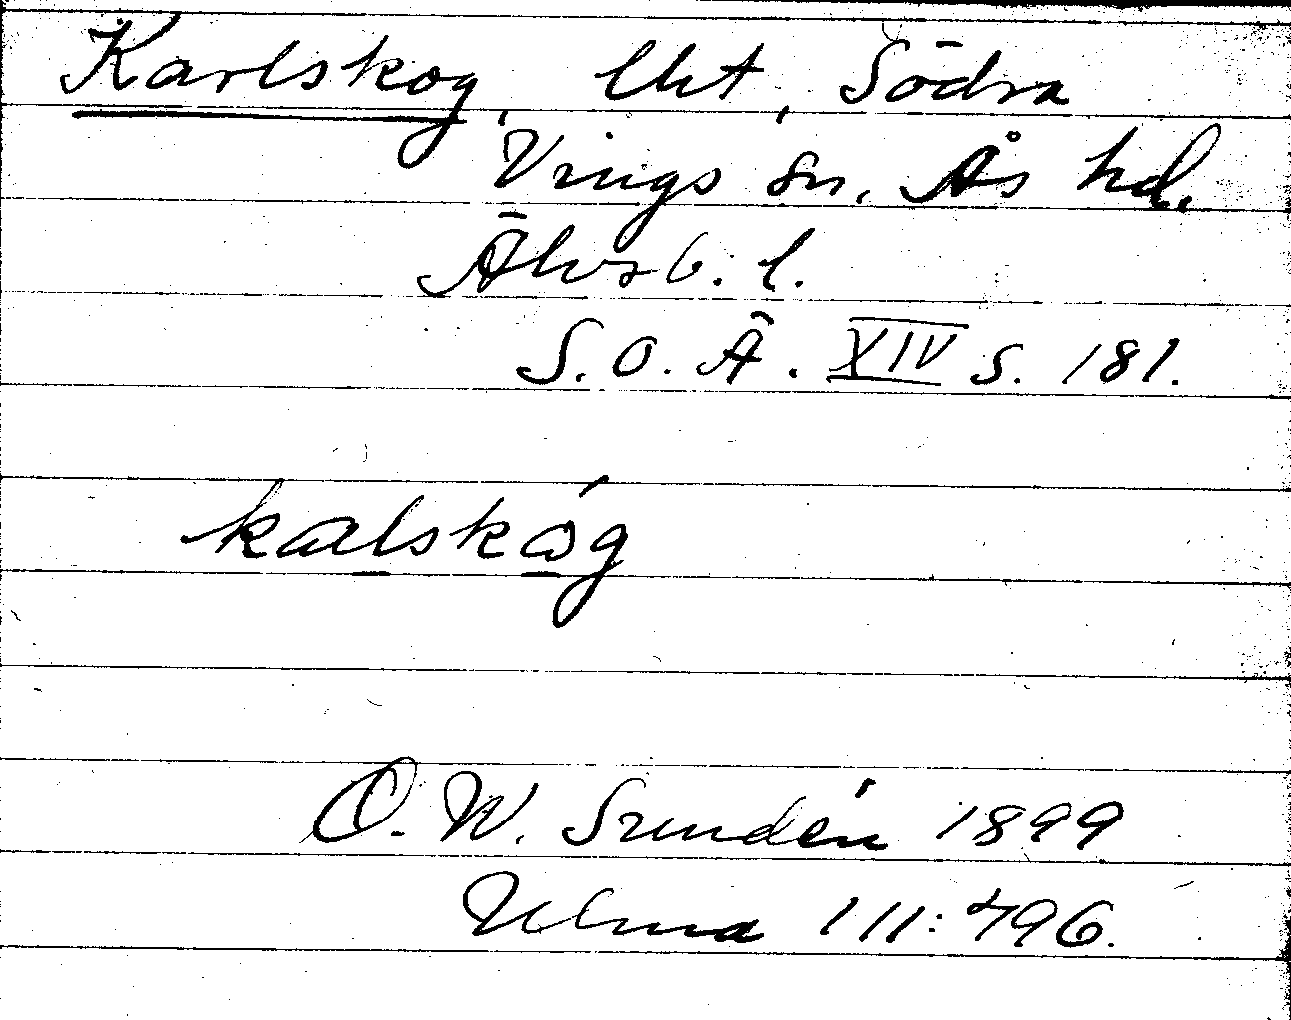 Karlskog, lht, Södra
Vings sn. Ås hd.
Älvsb. l.
S. O. Ä. XIV s. 181.
kalskóg
O. W. Sundén 1899
Ulma 111:496.